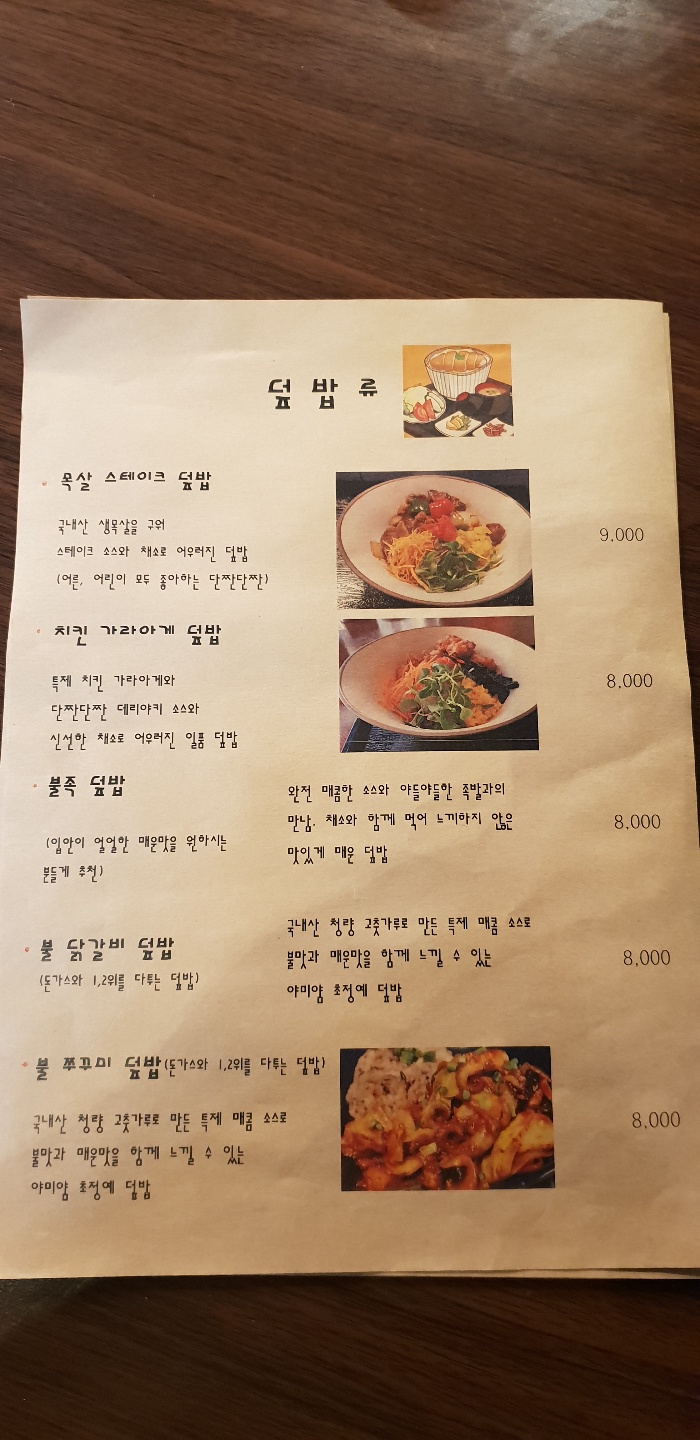 덮밥류
목살 스테이크 덮밥
국내산 생목살을 구워
스테이크 소스와 채소로 어우러진 덮밥
(어른, 어린이 모두 좋아하는 단짠단짠)
9,000
치킨 가라아게 덮밥
특제 치킨 가라아게와
단짠단짠 데리야키 소스와
신선한 채소로 어우러진 일품 덮밥
8,000
불족 덮밥
(입안이 얼얼한 매운맛을 원하시는
분들게 추천)
완전 매콤한 소스와 야들야들한 족발과의
만남. 채소와 함께 먹어 느끼하지 않은
맛있게 매운 덮밥
8,000
불 닭갈비 덮밥
(돈가스와 1,2위를 다투는 덮밥)
국내산 청량 고춧가루로 만든 특제 매콤 소스로
불맛과 매운맛을 함께 느낄 수 있는
야미얌 초정예 덮밥
8,000
불 쭈꾸미 덮밥(돈가스와 1,2위를 다투는 덮밥)
국내산 청량 고춧가루로 만든 특제 매콤 소스로
불맛과 매운맛을 함께 느낄 수 있는
야미얌 초정예 덮밥
8,000